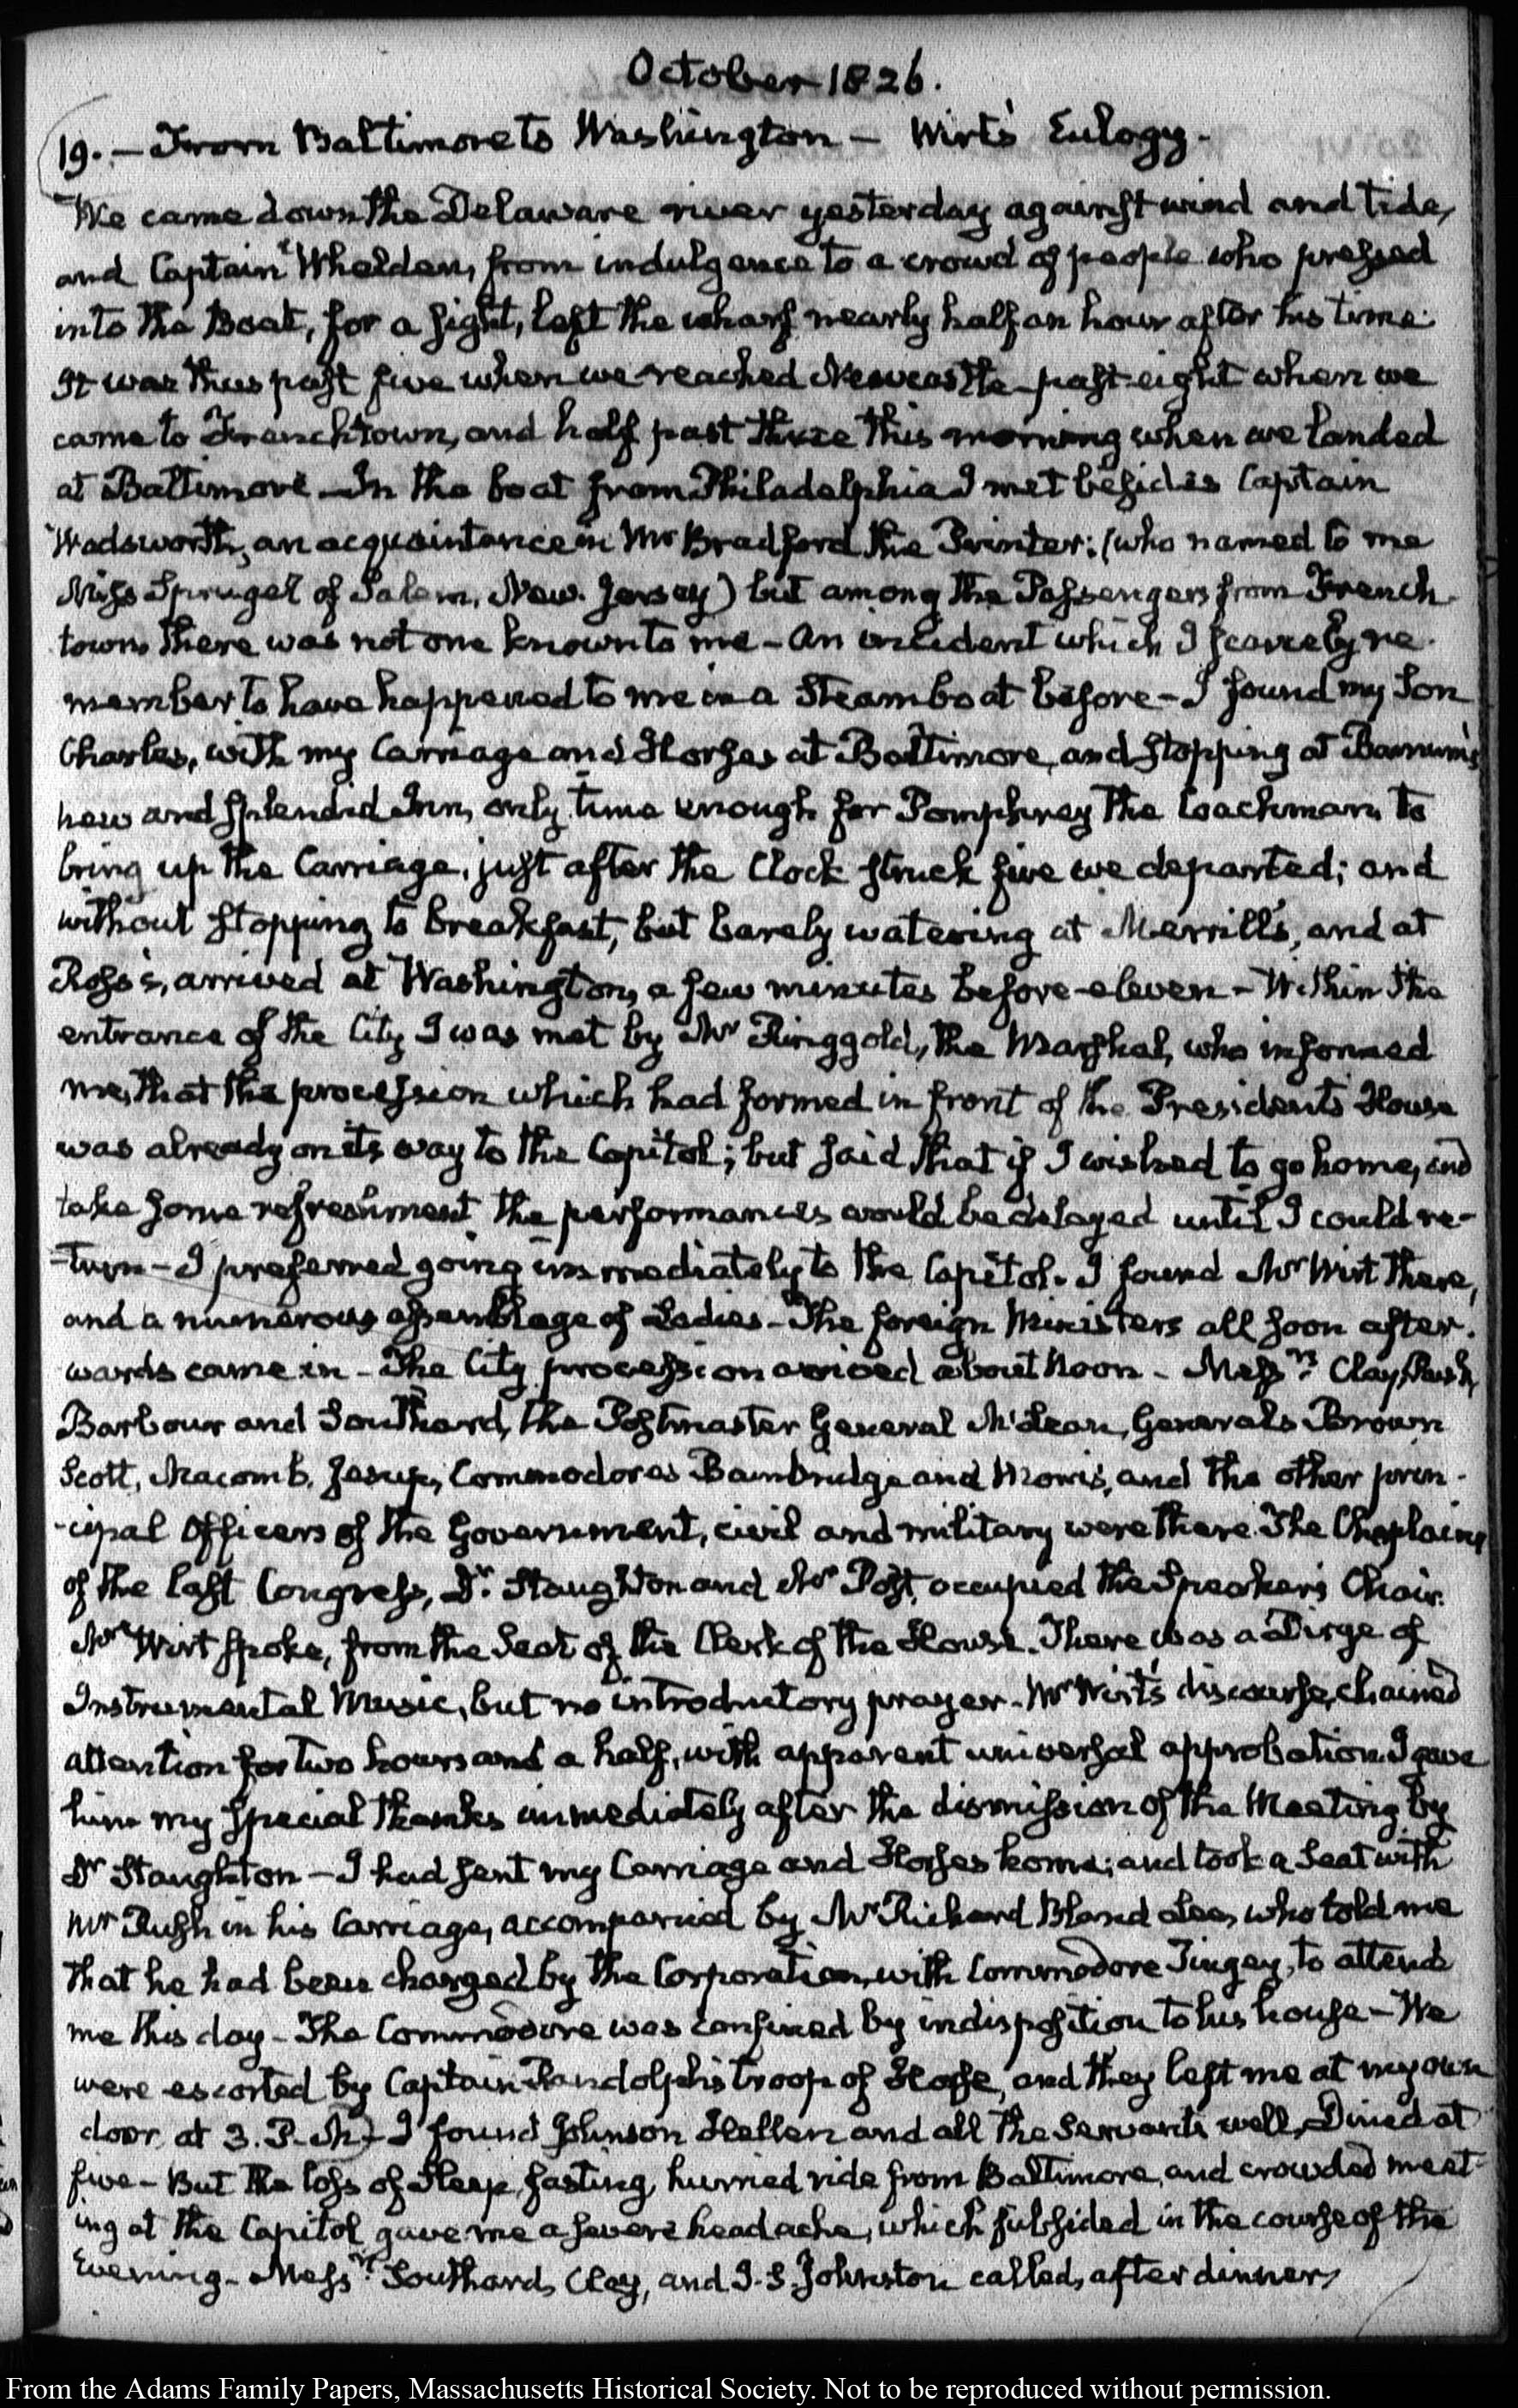 October 1826.
19. — From Baltimore to Washington — Wirt's Eulogy.
We came down the Delaware river yesterday against wind and tide,
and Captain Whelden, from indulgence to a crowd of people who pressed
into the Boat, for a sight, left the wharf nearly half an hour after his time.
It was thus past five when we reached Newcastle — past eight when we
came to Frenchtown, and half past three this morning when we landed
at Baltimore — In the boat from Philadelphia I met besides Captain
Wadsworth, an acquaintance in Mr Bradford the Printer; (who named to me
Miss of Salem, New-Jersey) but among the Passengers from French-
town there was not one known to me — An incident which I scarcely re-
member to have happened to me in a Steamboat before — I found my Son
Charles, with my Carriage and Horses at Baltimore, and stopping at Barnum's
new and splendid Inn, only time enough for Pomphrey the Coachman to
bring up the Carriage, just after the Clock struck five we departed; and
without stopping to breakfast, but barely watering at Merrill's, and at
Ross's, arrived at Washington, a few minutes before eleven — Within the
entrance of the City I was met by Mr Ringgold, the Marshal, who informed
me, that the procession which had formed in front of the President's House
was already on its way to the Capitol; but said that if I wished to go home, and
take some refreshment the performances would be delayed until I could re-
-turn — I preferred going immediately to the Capitol. I found Mr Wirt there,
and a numerous assemblage of Ladies — The foreign Ministers all soon after-
wards came in — The City procession arrived about Noon — Messrs Clay, Rush,
Barbour and Southard, the Postmaster General McLean, Generals Brown
Scott, Macomb, Jesup, Commodores Bainbridge and Morris, and the other prin-
-cipal Officers of the Government, civil and military were there. The Chaplains
of the last Congress, Dr Staughton and Mr Post, occupied the Speaker's Chair.
Mr Wirt spoke, from the Seat of the Clerk of the House. There was a Dirge of
Instrumental Music, but no introductory prayer. Mr Wirt's discourse, chained
attention for two hours and a half, with apparent universal approbation. I gave
him my special thanks immediately after the dismission of the Meeting by
Dr Staughton — I had sent my Carriage and Horses home; and took a Seat with
Mr Rush in his Carriage, accompanied by Mr Richard Bland Lee, who told me
that he had been charged by the Corporation, with Commodore Tingey, to attend
me this day — The Commodore was confined by indisposition to his house — We
were escorted by Captain Randolph's troop of Horse, and they left me at my own
door at 3. P.M. I found Johnson Hellen and all the Servants well, Dined at
five — But the loss of Sleep, fasting, hurried ride from Baltimore, and crowded meet-
ing at the Capitol gave me a severe head ache, which subsided in the course of the
Evening — Messrs Southard, Clay, and J. S. Johnston called, after dinner,
From the Adams Family Papers, Massachusetts Historical Society. Not to be reproduced without permission.